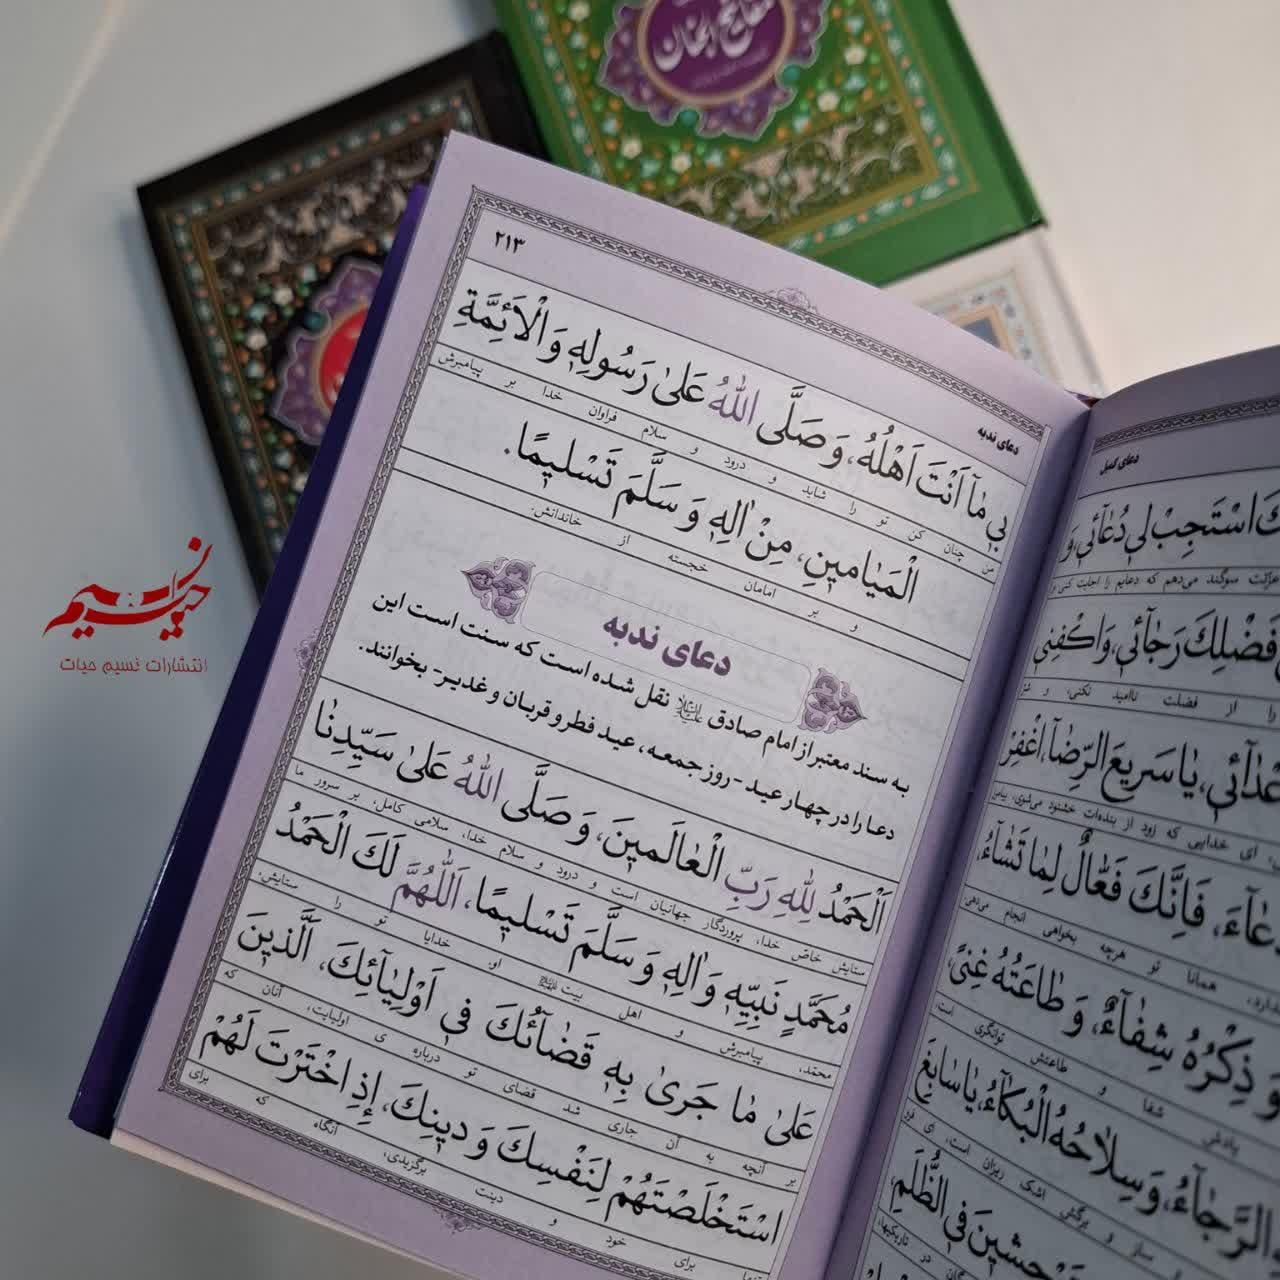 مفاتیح الجنان
۲۱۳
دعای ندبه
بي مٰا اَنْتَ اَهْلُهُ، وَ صَلَّى اللّٰهُ عَلىٰ رَسُولِهِ وَ الْاَئِمَّةِ
من چنان کن تو را شاید و درود و سلام فراوان خدا بر پیامبرش
الْمَيٰامينِ، مِنْ اٰلِهِ وَ سَلَّمَ تَسْليمًا.
و بر امامان خجسته از خاندانش.
دعای ندبه
به سند معتبر از امام صادق علیه‌السلام نقل شده است که سنت است این
دعا را در چهار عید - روز جمعه، عید فطر و قربان و غدیر - بخوانند.
اَلْحَمْدُ لِلّٰهِ رَبِّ الْعٰالَمينَ، وَ صَلَّى اللّٰهُ عَلىٰ سَيِّدِنٰا
ستایش خاصّ خدا، پروردگار جهانیان است و درود و سلام خدا، سلامی کامل، بر سرور ما
مُحَمَّدٍ نَبِيِّهِ وَ اٰلِهِ وَ سَلَّمَ تَسْليمًا، اَللّٰهُمَّ لَكَ الْحَمْدُ
محمّد، پیامبرش و اهل بیت او. خدایا تو را ستایش،
عَلىٰ مٰا جَرىٰ بِهِ قَضٰآئُكَ في اَوْلِيٰآئِكَ، اَلَّذينَ
بر آنچه به آن جاری شد قضای تو درباره ی اولیایت، آنان که
اسْتَخْلَصْتَهُمْ لِنَفْسِكَ وَ دينِكَ، إِذِ اخْتَرْتَ لَهُمْ
تنها برای خود و دینت برگزیدی، آنگاه که برای
دعای کمیل
اسْتَجِبْ لي دُعٰآئي، وَ
عزّتت سوگند می‌دهم که دعایم را اجابت کنی و
فَضْلِكَ رَجٰآئي، وَ اكْفِني
را از فضلت ناامید نکنی، و شرّ
يٰا سَريعَ الرِّضٰا، اِغْفِرْ
ای خدایی که زود از بنده‌ات خشنود می‌شوی، بیامرز
فَاِنَّكَ فَعّٰالٌ لِمٰا تَشٰآءُ،
همانا تو هرچه بخواهی انجام می‌دهی.
وَ ذِكْرُهُ شِفٰآءٌ، وَ طٰاعَتُهُ غِنىً،
یادش شفا و طاعتش توانگری است،
الرَّجٰآءُ، وَ سِلاٰحُهُ الْبُكٰآءُ، يٰا سٰابِغَ
ساز و برگش اشک ریزان است، ای فرو
فِي الظُّلَمِ،
در تاریکیها،
نسیم حیات
انتشارات نسیم حیات